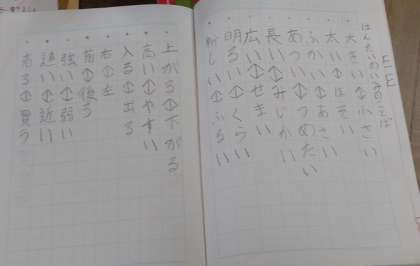 はんたいのいみのことば
大きい↕小さい
太い↕ほそい
ふかい↕あさい
あつい↕つめたい
長い↕みじかい
広い↕せまい
明るい↕くらい
新しい↕ふるい
上がる↕下がる
高い↕やすい
入る↕出る
右↕左
前↕後ろ
強い↕弱い
遠い↕近い
売る↕買う